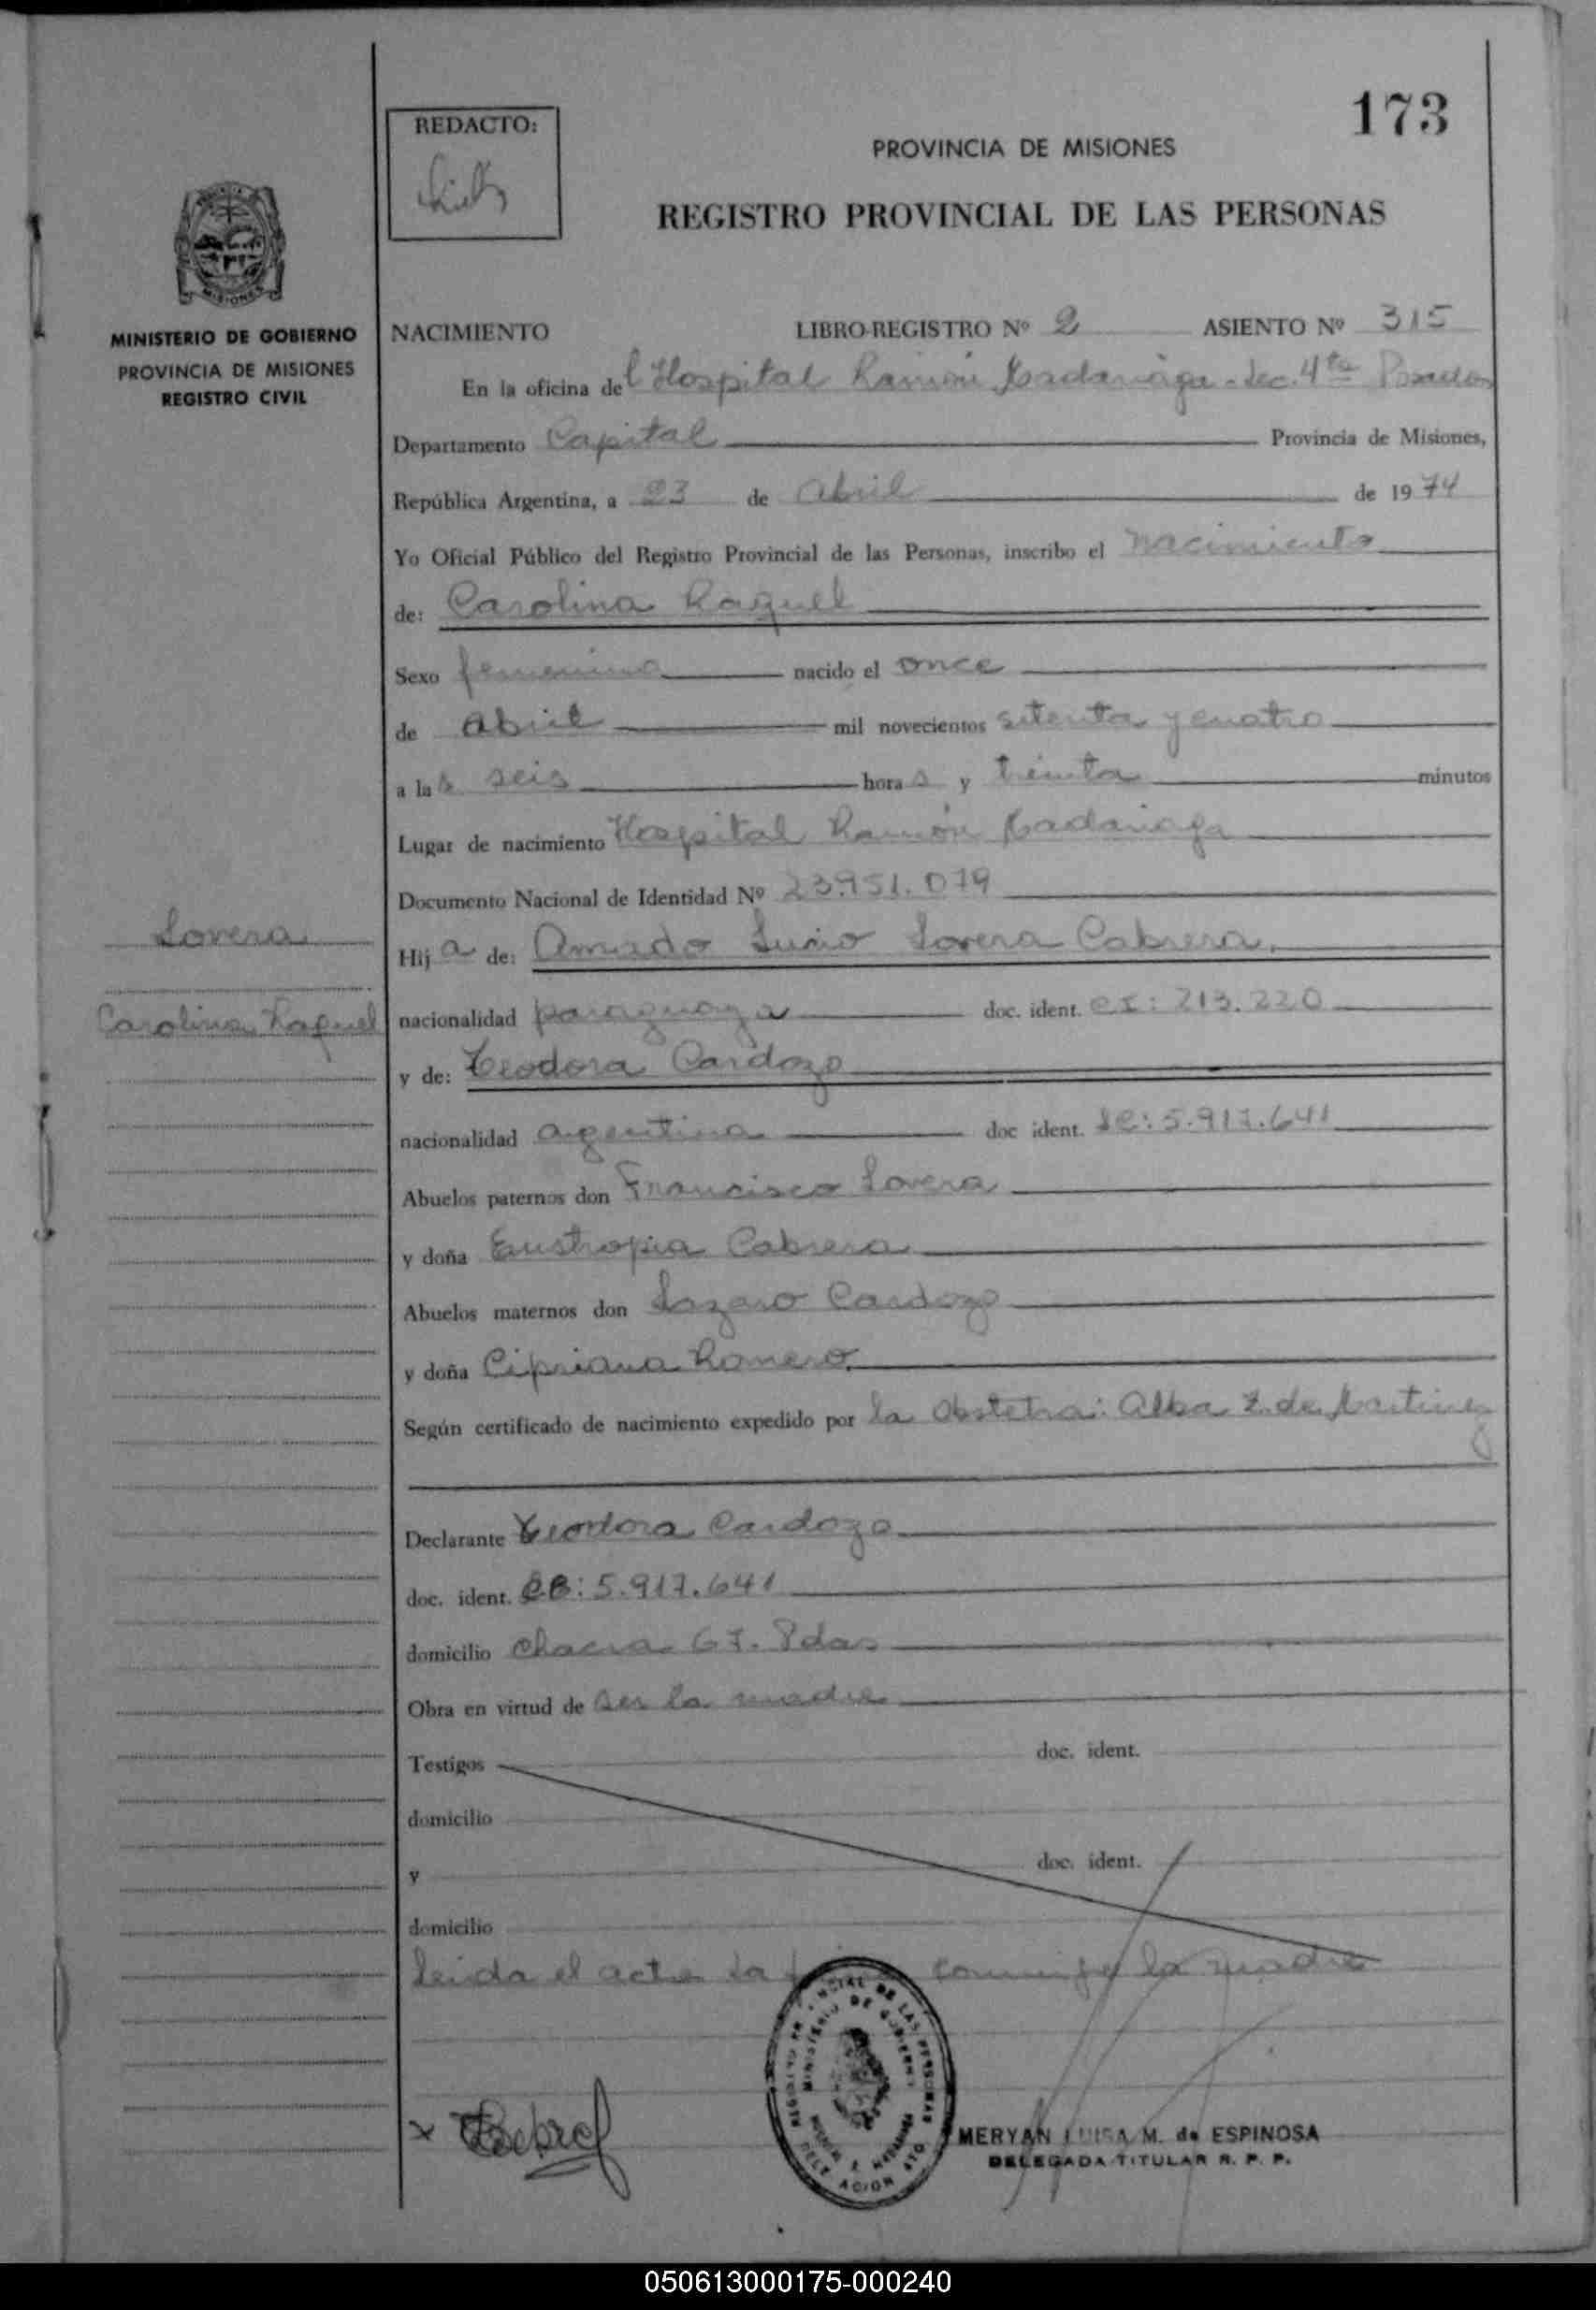 173
REDACTO:
PROVINCIA DE MISIONES
REGISTRO PROVINCIAL DE LAS PERSONAS
MISIONES
MINISTERIO DE GOBIERNO
PROVINCIA DE MISIONES
REGISTRO CIVIL
NACIMIENTO LIBRO-REGISTRO Nº 2 ASIENTO Nº 315
En la oficina del Hospital Ramón Madariaga - Sec. 4ta Posadas
Departamento Capital Provincia de Misiones,
República Argentina, a 23 de Abril de 1974
Yo Oficial Público del Registro Provincial de las Personas, inscribo el nacimiento
de: Carolina Raquel
Sexo femenino nacido el once
de Abril mil novecientos setenta y cuatro
a las seis horas y treinta minutos
Lugar de nacimiento Hospital Ramón Madariaga
Documento Nacional de Identidad Nº 23.951.079
Lovera
Carolina Raquel
Hija de: Amado Lovera Cabrera.
nacionalidad paraguaya doc. ident. CI: 213.220
y de: Teodora Cardozo
nacionalidad argentina doc ident. LC: 5.917.641
Abuelos paternos don Francisco Lovera
y doña Eustropia Cabrera
Abuelos maternos don Lazaro Cardozo
y doña Cipriana Romero.
Según certificado de nacimiento expedido por la Obstetra: Alba Z. de Martinez
Declarante Teodora Cardozo
doc. ident. 5.917.641
domicilio chacra 67. Pdas
Obra en virtud de ser la madre
Testigos doc. ident.
domicilio
y doc. ident.
domicilio
Leida el acta la conmigo la madre
x
MERYAN LUISA M. de ESPINOSA
DELEGADA TITULAR R. P. P.
050613000175-000240